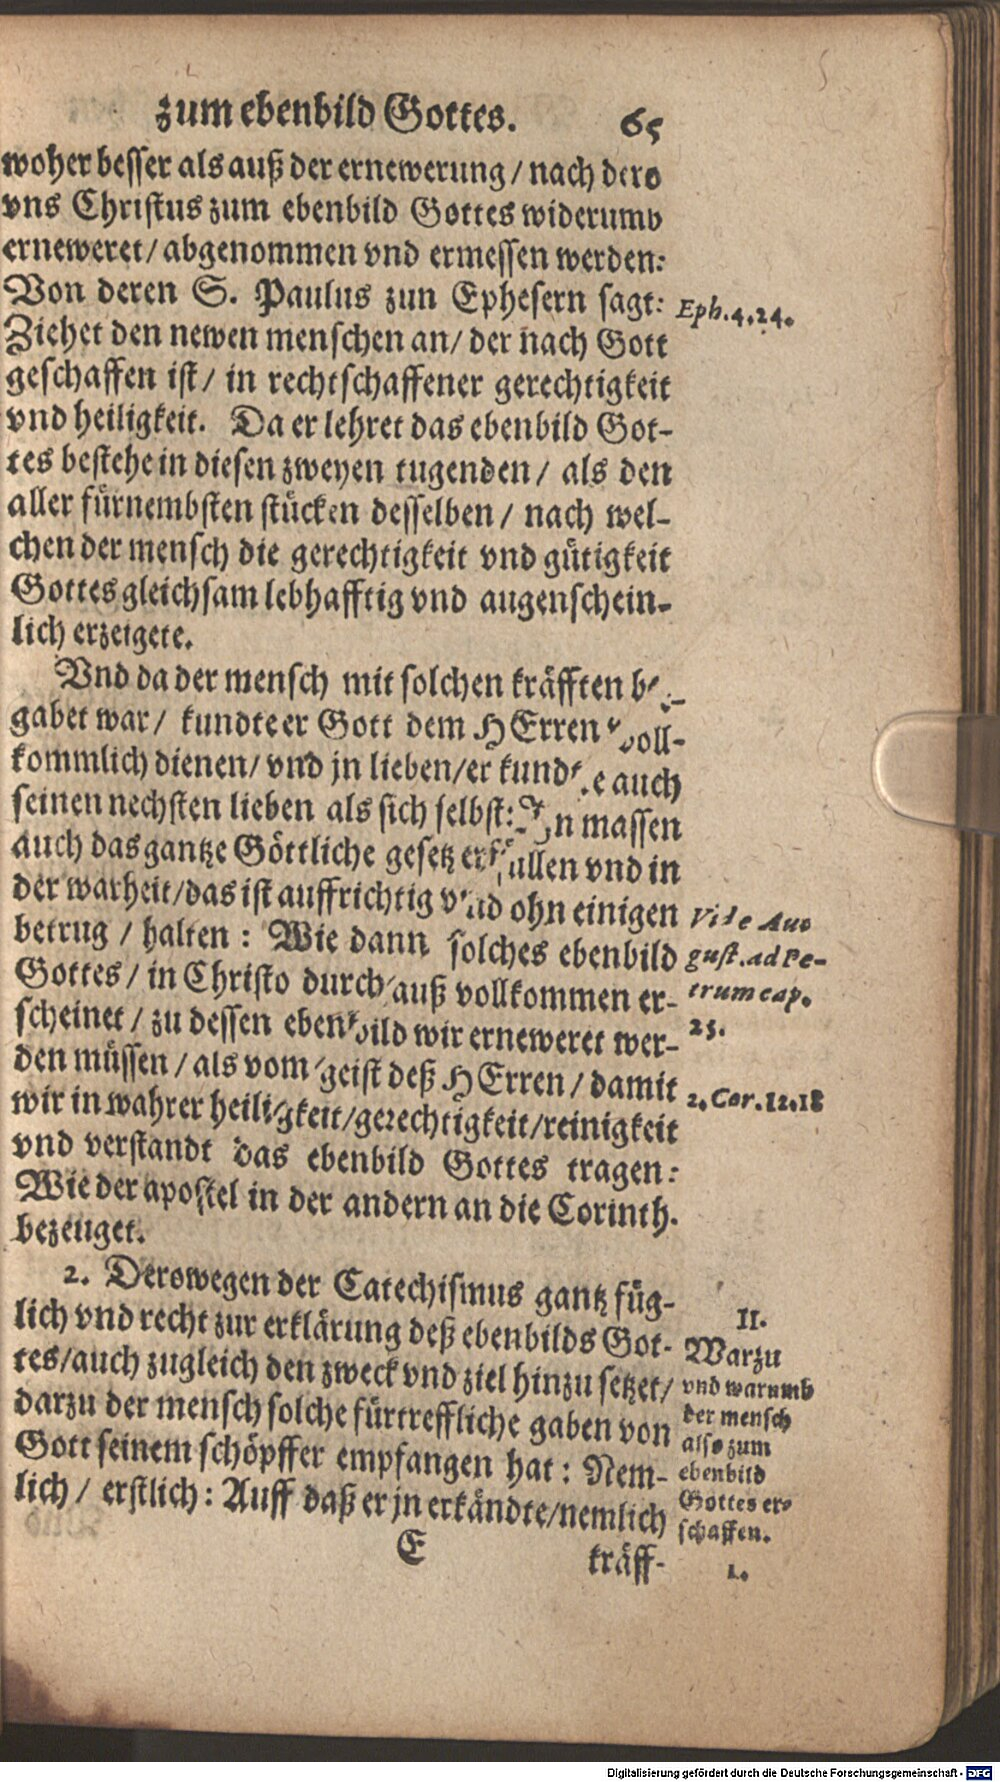 zum ebenbild Gottes. 65
woher besser als auß der ernewerung / nach dero
vns Christus zum ebenbild Gottes widerumb
erneweret / abgenommen vnd ermessen werden:
Von deren S. Paulus zun Ephesern sagt:
Eph. 4. 24.
Ziehet den newen menschen an / der nach Gott
geschaffen ist / in rechtschaffener gerechtigkeit
vnd heiligkeit. Da er lehret das ebenbild Got-
tes bestehe in diesen zweyen tugenden / als den
aller fürnembsten stücken desselben / nach wel-
chen der mensch die gerechtigkeit vnd gütigkeit
Gottes gleichsam lebhafftig vnd augenschein-
lich erzeigete.
Vnd da der mensch mit solchen kräfften be-
gabet war / kundte er Gott dem HErren voll-
kommlich dienen / vnd jn lieben / er kundte auch
seinen nechsten lieben als sich selbst: In massen
auch das gantze Göttliche gesetz erfüllen vnd in
der warheit / das ist auffrichtig vnd ohn einigen
betrug / halten: Wie dann solches ebenbild
Gottes / in Christo durchauß vollkommen er-
scheinet / zu dessen ebenbild wir erneweret wer-
den müssen / als vom geist deß HErren / damit
wir in wahrer heiligkeit / gerechtigkeit / reinigkeit
vnd verstandt das ebenbild Gottes tragen:
Wie der apostel in der andern an die Corinth.
bezeuget.
Vide Au-
gust. ad Pe-
trum cap.
25.
2. Cor. 12. 18
2. Derowegen der Catechismus gantz füg-
lich vnd recht zur erklärung deß ebenbilds Got-
tes / auch zugleich den zweck vnd ziel hinzu setzet /
darzu der mensch solche fürtreffliche gaben von
Gott seinem schöpffer empfangen hat: Nem-
lich / erstlich: Auff daß er jn erkändte / nemlich
II.
Warzu
vnd warumb
der mensch
also zum
ebenbild
Gottes er-
schaffen.
1.
E kräff-
Digitalisierung gefördert durch die Deutsche Forschungsgemeinschaft - DFG